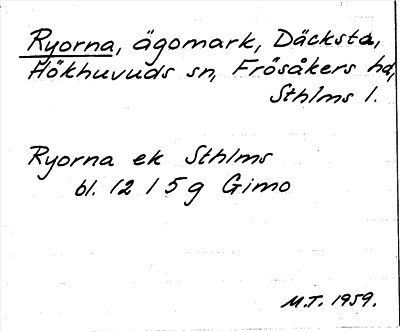 Ryorna, ägomark, Däcksta,
Hökhuvuds sn, Frösåkers hd,
Sthlms l.
Ryorna ek Sthlms
bl. 12 I 5 g Gimo
M.T. 1959.